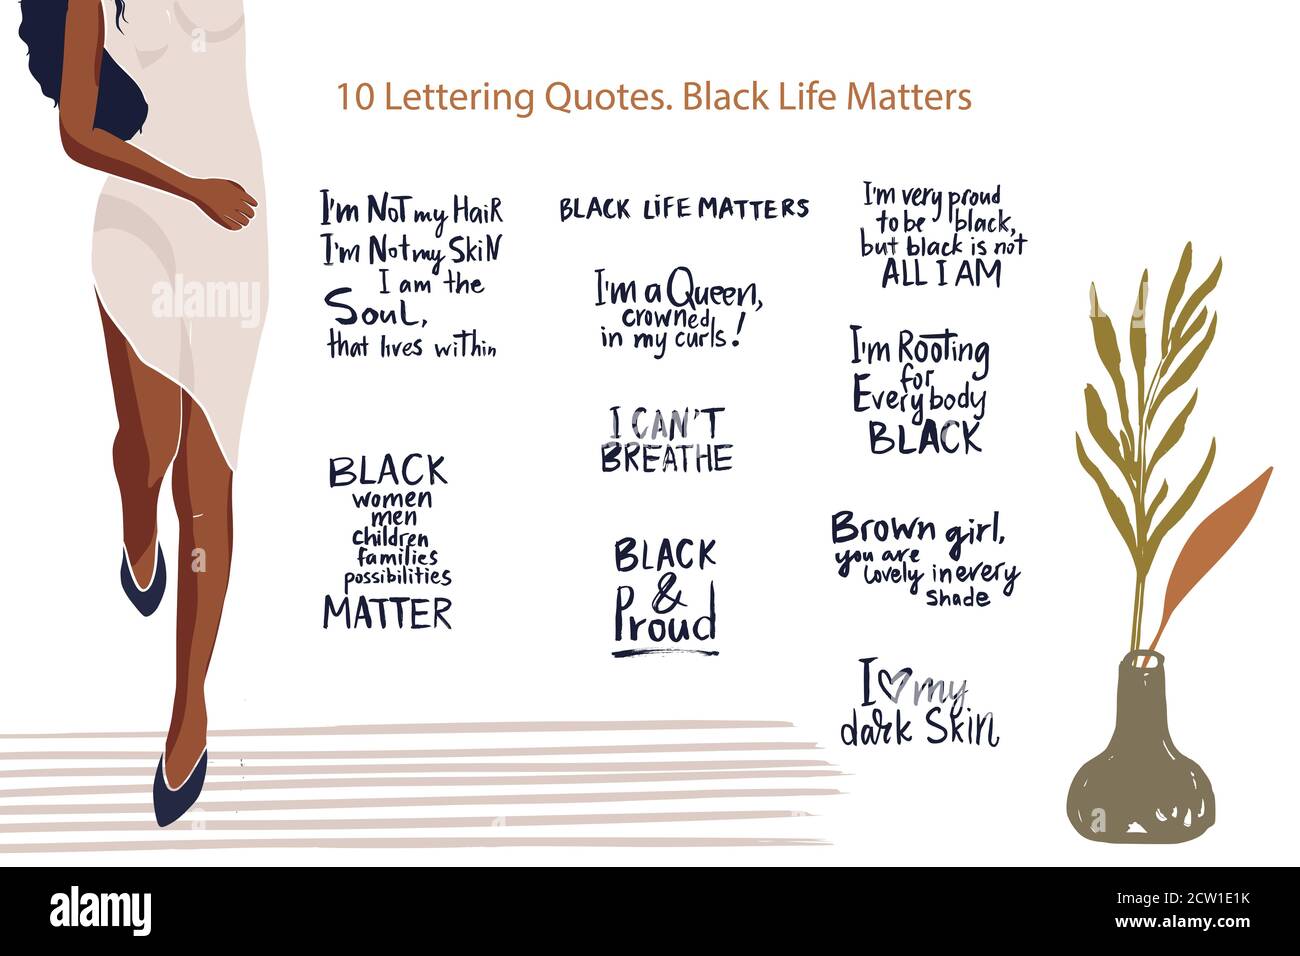 10 Lettering Quotes. Black Life Matters
I'm NOT my HaiR
I'm Not my SKiN
I am the
SouL,
that lives within
BLACK
women
men
children
families
possibilities
MATTER
BLACK LiFE MATTERS
I'm a Queen,
crowned
in my curls!
I CAN'T
BREATHE
BLACK
&
Proud
I'm very proud
to be black,
but black is not
ALL I AM
I'm Rooting
for
Everybody
BLACK
Brown girl,
you are
lovely in every
shade
I my
dark Skin
alamy
alamy
Image ID: 2CW1E1K
www.alamy.com